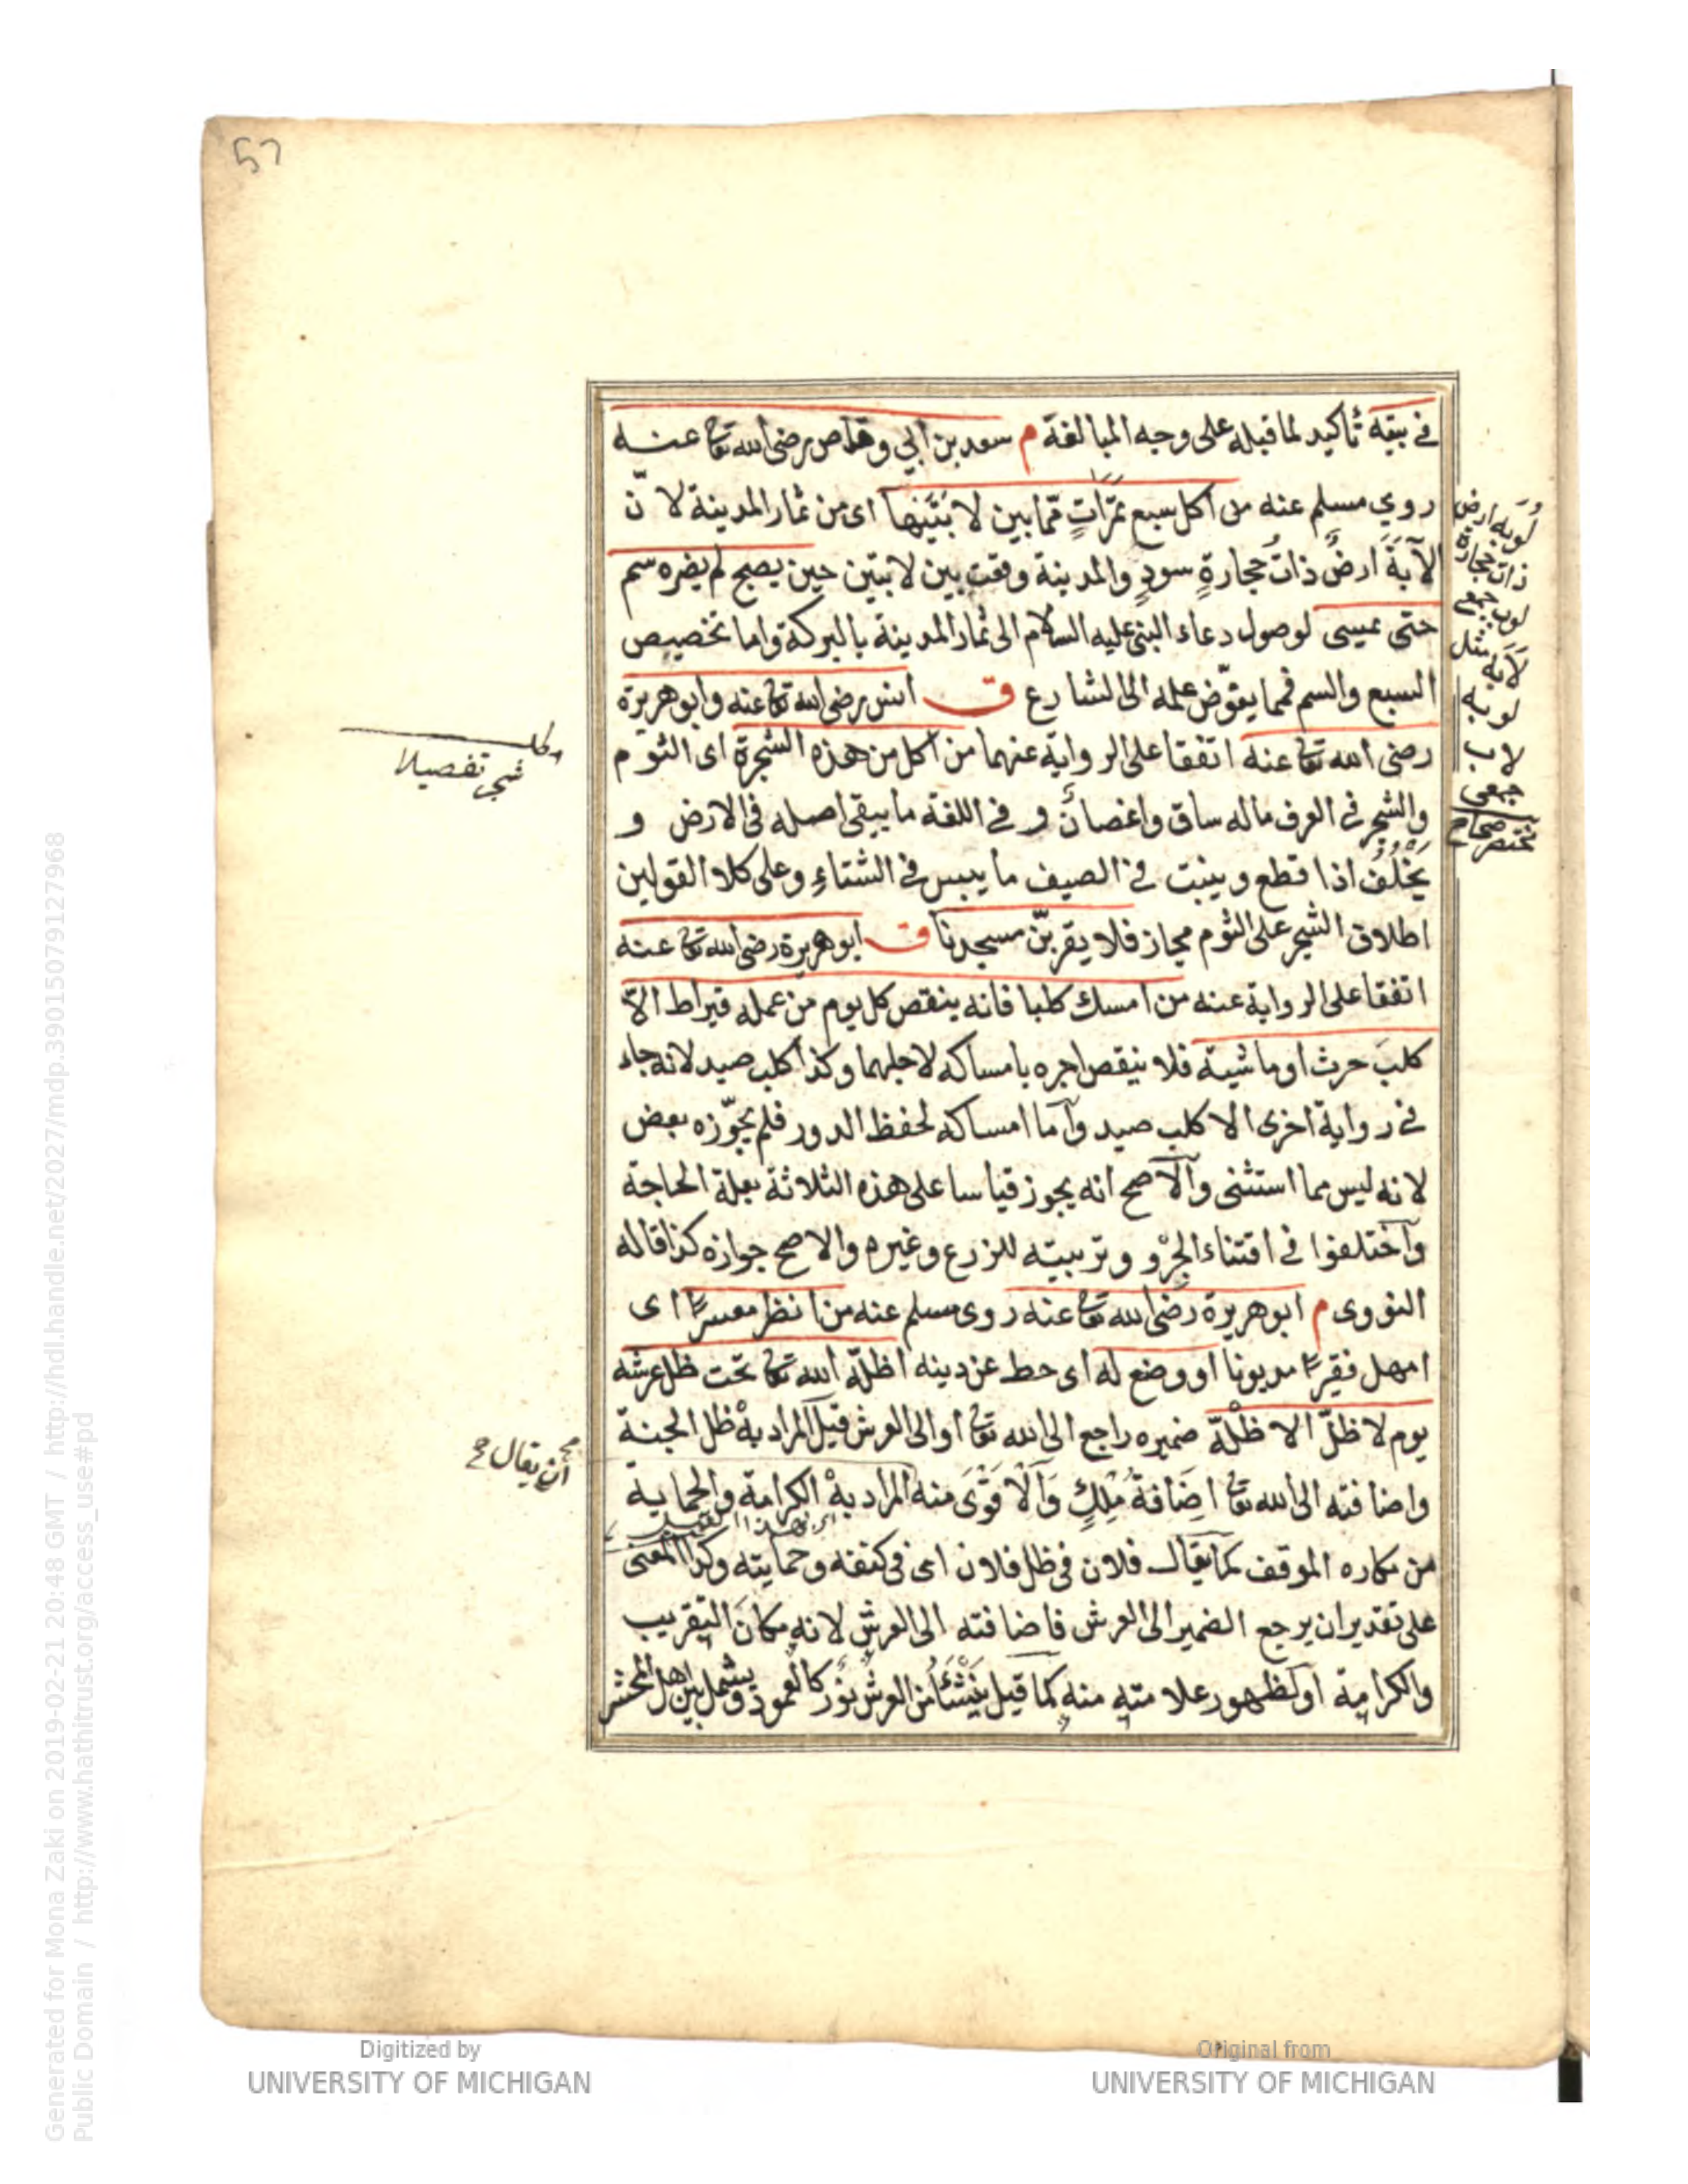 57
في بيته تأكيد لما قبله على وجه المبالغة م سعد بن ابي وقاص رضى الله تعا عنه
روي مسلم عنه من اكل سبع تمرات مما بين لابتيها اى من ثمار المدينة لا ن
اللابة ارض ذات حجارة سود والمدينة وقعت بين لابتين حين يصبح لم يضره سم
حتى يمسى لوصول دعاء النبى عليه السلام الى ثمار المدينة بالبركة واما تخصيص
السبع والسم فمما يفوّض علمه الى الشارع ق انس رضى الله تعا عنه وابو هريرة
رضى الله تعا عنه اتفقا على الرواية عنهما من اكل من هذه الشجرة اى الثوم
والشجر في العرف ماله ساق واغصان و في اللغة ما يبقى اصله فى الارض و
يخلف اذا قطع وينبت في الصيف ما ييبس في الشتاء وعلى كلا القولين
اطلاق الشجر على الثوم مجاز فلا يقربنّ مسجدنا ق ابو هريرة رضى الله تعا عنه
اتفقا على الرواية عنه من امسك كلبا فانه ينقص كل يوم من عمله قيراط الاّ
كلب حرث او ماشية فلا ينقص اجره بامساكه لاجلهما وكذا كلب صيد لانه جاء
في رواية اخرى الا كلب صيد وأما امساكه لحفظ الدور فلم يجوّزه بعض
لانه ليس مما استثنى والأصح انه يجوز قياسا على هذه الثلاثة بعلة الحاجة
وأختلفوا في اقتناء الجرْو وتربيته للزرع وغيره والاصح جوازه كذا قاله
النووى م ابو هريرة رضى الله تعا عنه روى مسلم عنه من انظر معسرًا اى
امهل فقيرًا مديونا او وضع له اى حط عن دينه اظلّه الله تعا تحت ظل عرشه
يوم لا ظلّ الا ظلّه ضميره راجع الى الله تعا او الى العرش قيل المراد به ظل الجنة
واضافته الى الله تعا اضافة ملك والاقوى منه المراد به الكرامة والحماية
من مكاره الموقف كما يقال فلان فى ظل فلان اى فى كنفه وحمايته وكذا المعنى
على تقدير ان يرجع الضمير الى العرش فاضافته الى العرش لانه مكان التقريب
والكرامة او لظهور علامته منه كما قيل ينشأ من العرش نور كالعمود ويشمل بين اهل المحشر
لوبه ارض
ذات حجارة
لوب جمع
لابه مثل
لوبه
لاب
جمعى
مختصر صحاح
شجر تفصيلا
ان يقال
Generated for Mona Zaki on 2019-02-21 20:48 GMT / http://hdl.handle.net/2027/mdp.39015079127968
Public Domain / http://www.hathitrust.org/access_use#pd
Digitized by
UNIVERSITY OF MICHIGAN
Original from
UNIVERSITY OF MICHIGAN